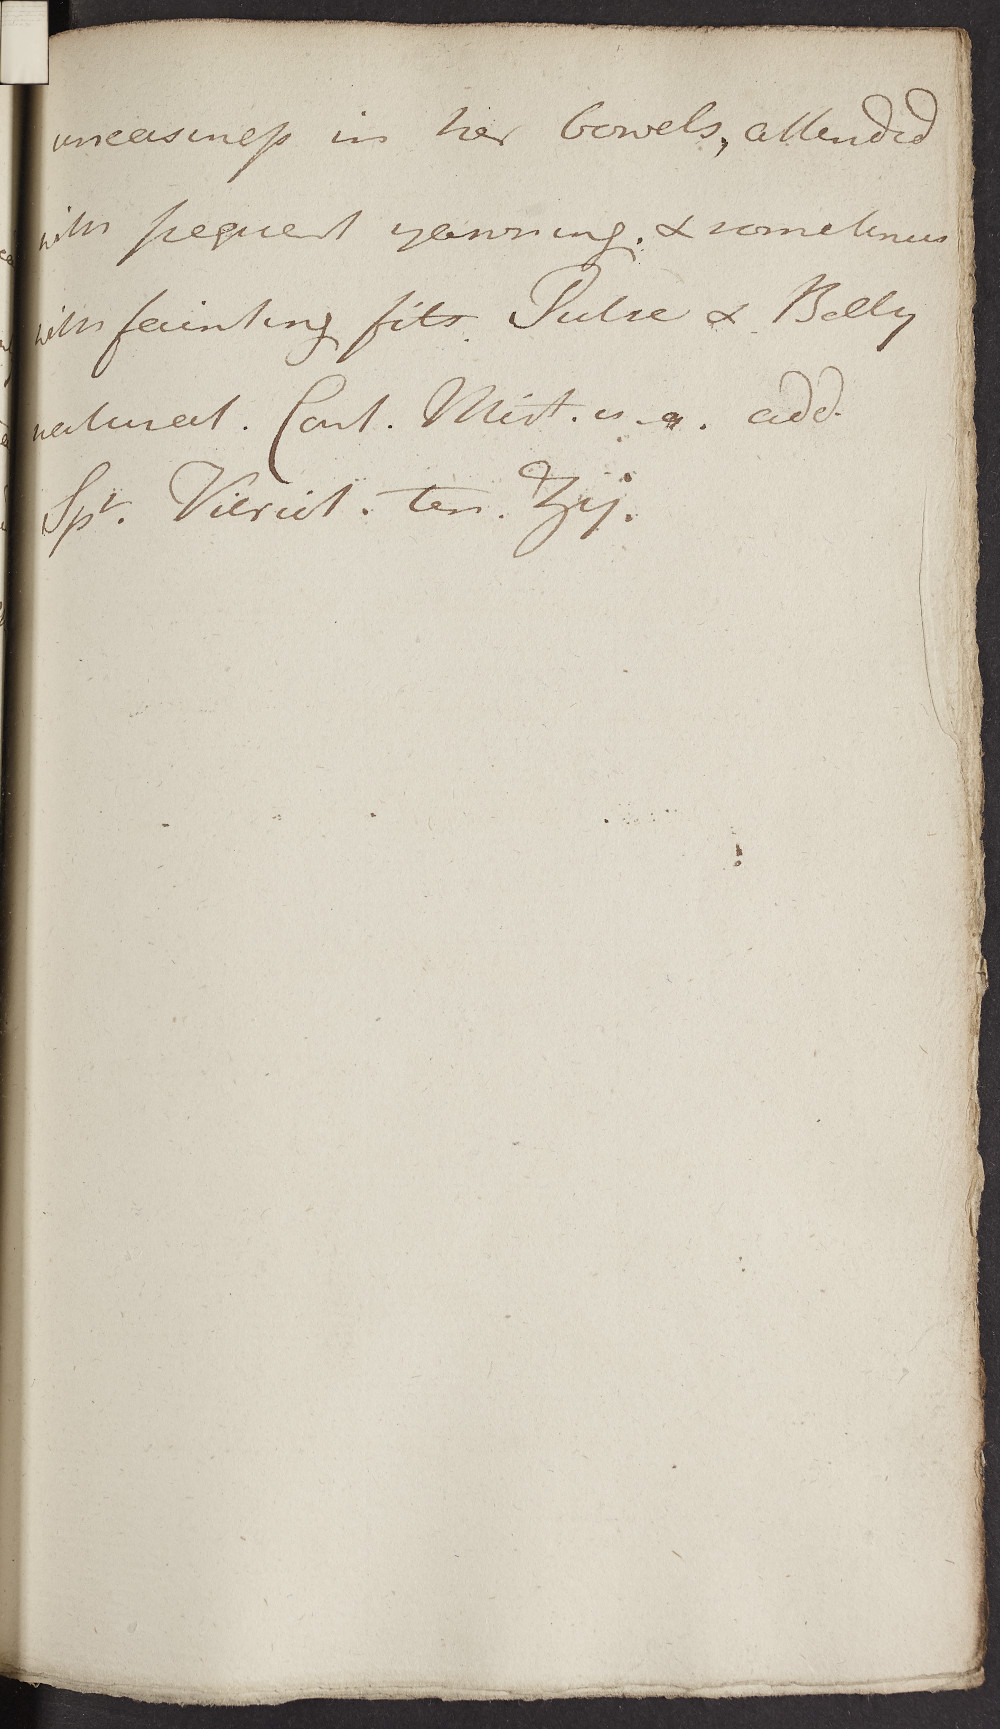 uneasiness in her bowels, attended
with frequent yawning. & sometimes
with fainting fits. Pulse & Belly
natural. Cont. Mist. u. a. add.
Spt. Vitriol. ten. ʒij.